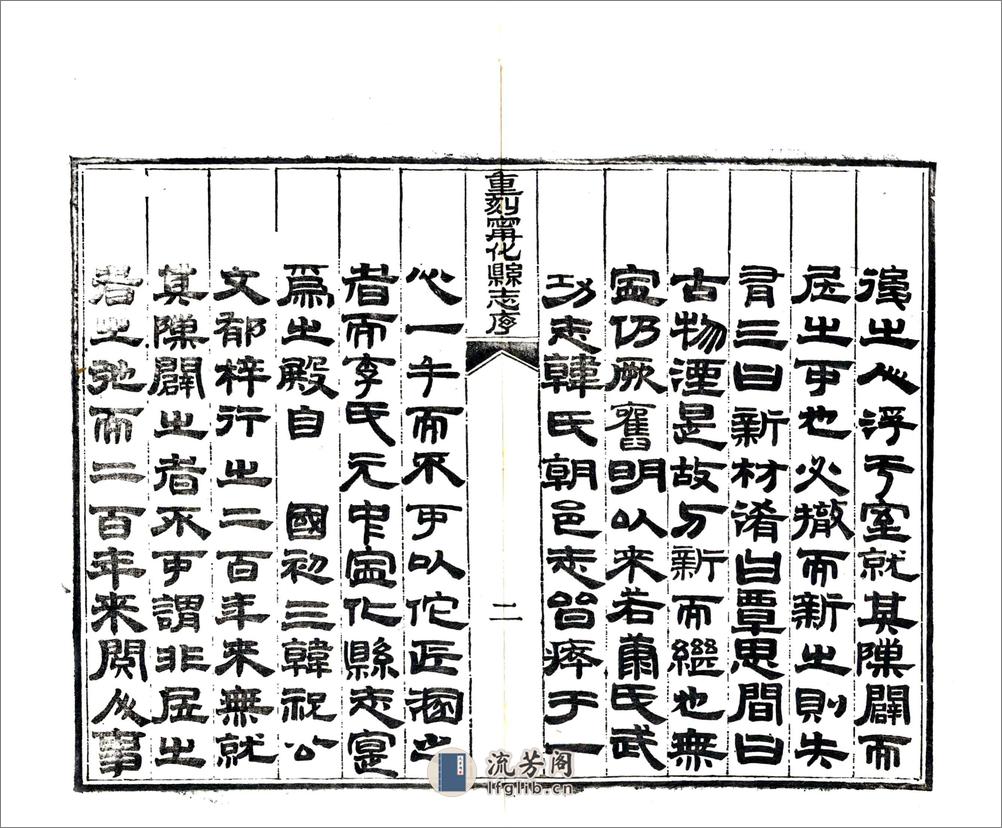 後之人浮于室就其隙闢而
居之可也必撤而新之則失
有三曰新材淆曰覃思間曰
古物湮是故与新而繼也無
寧仍厥舊明以來若康氏武
功志韓氏朝邑志皆瘁于一
重刻寧化縣志序
二
心一手而不可以佗匠溷之
者而李氏元仲寧化縣志寔
爲之殿自 國初三韓祝公
文郁梓行之二百年來無就
其隙闢之者不可謂非居之
者之弛而二百年來閱人事
流芳阁
lfglib.cn